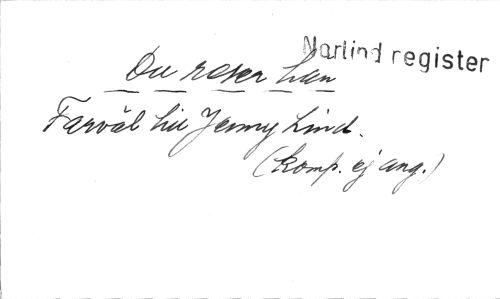 Norlind register
Du reser hän
Farväl till Jenny Lind.
(komp. ej ang.)